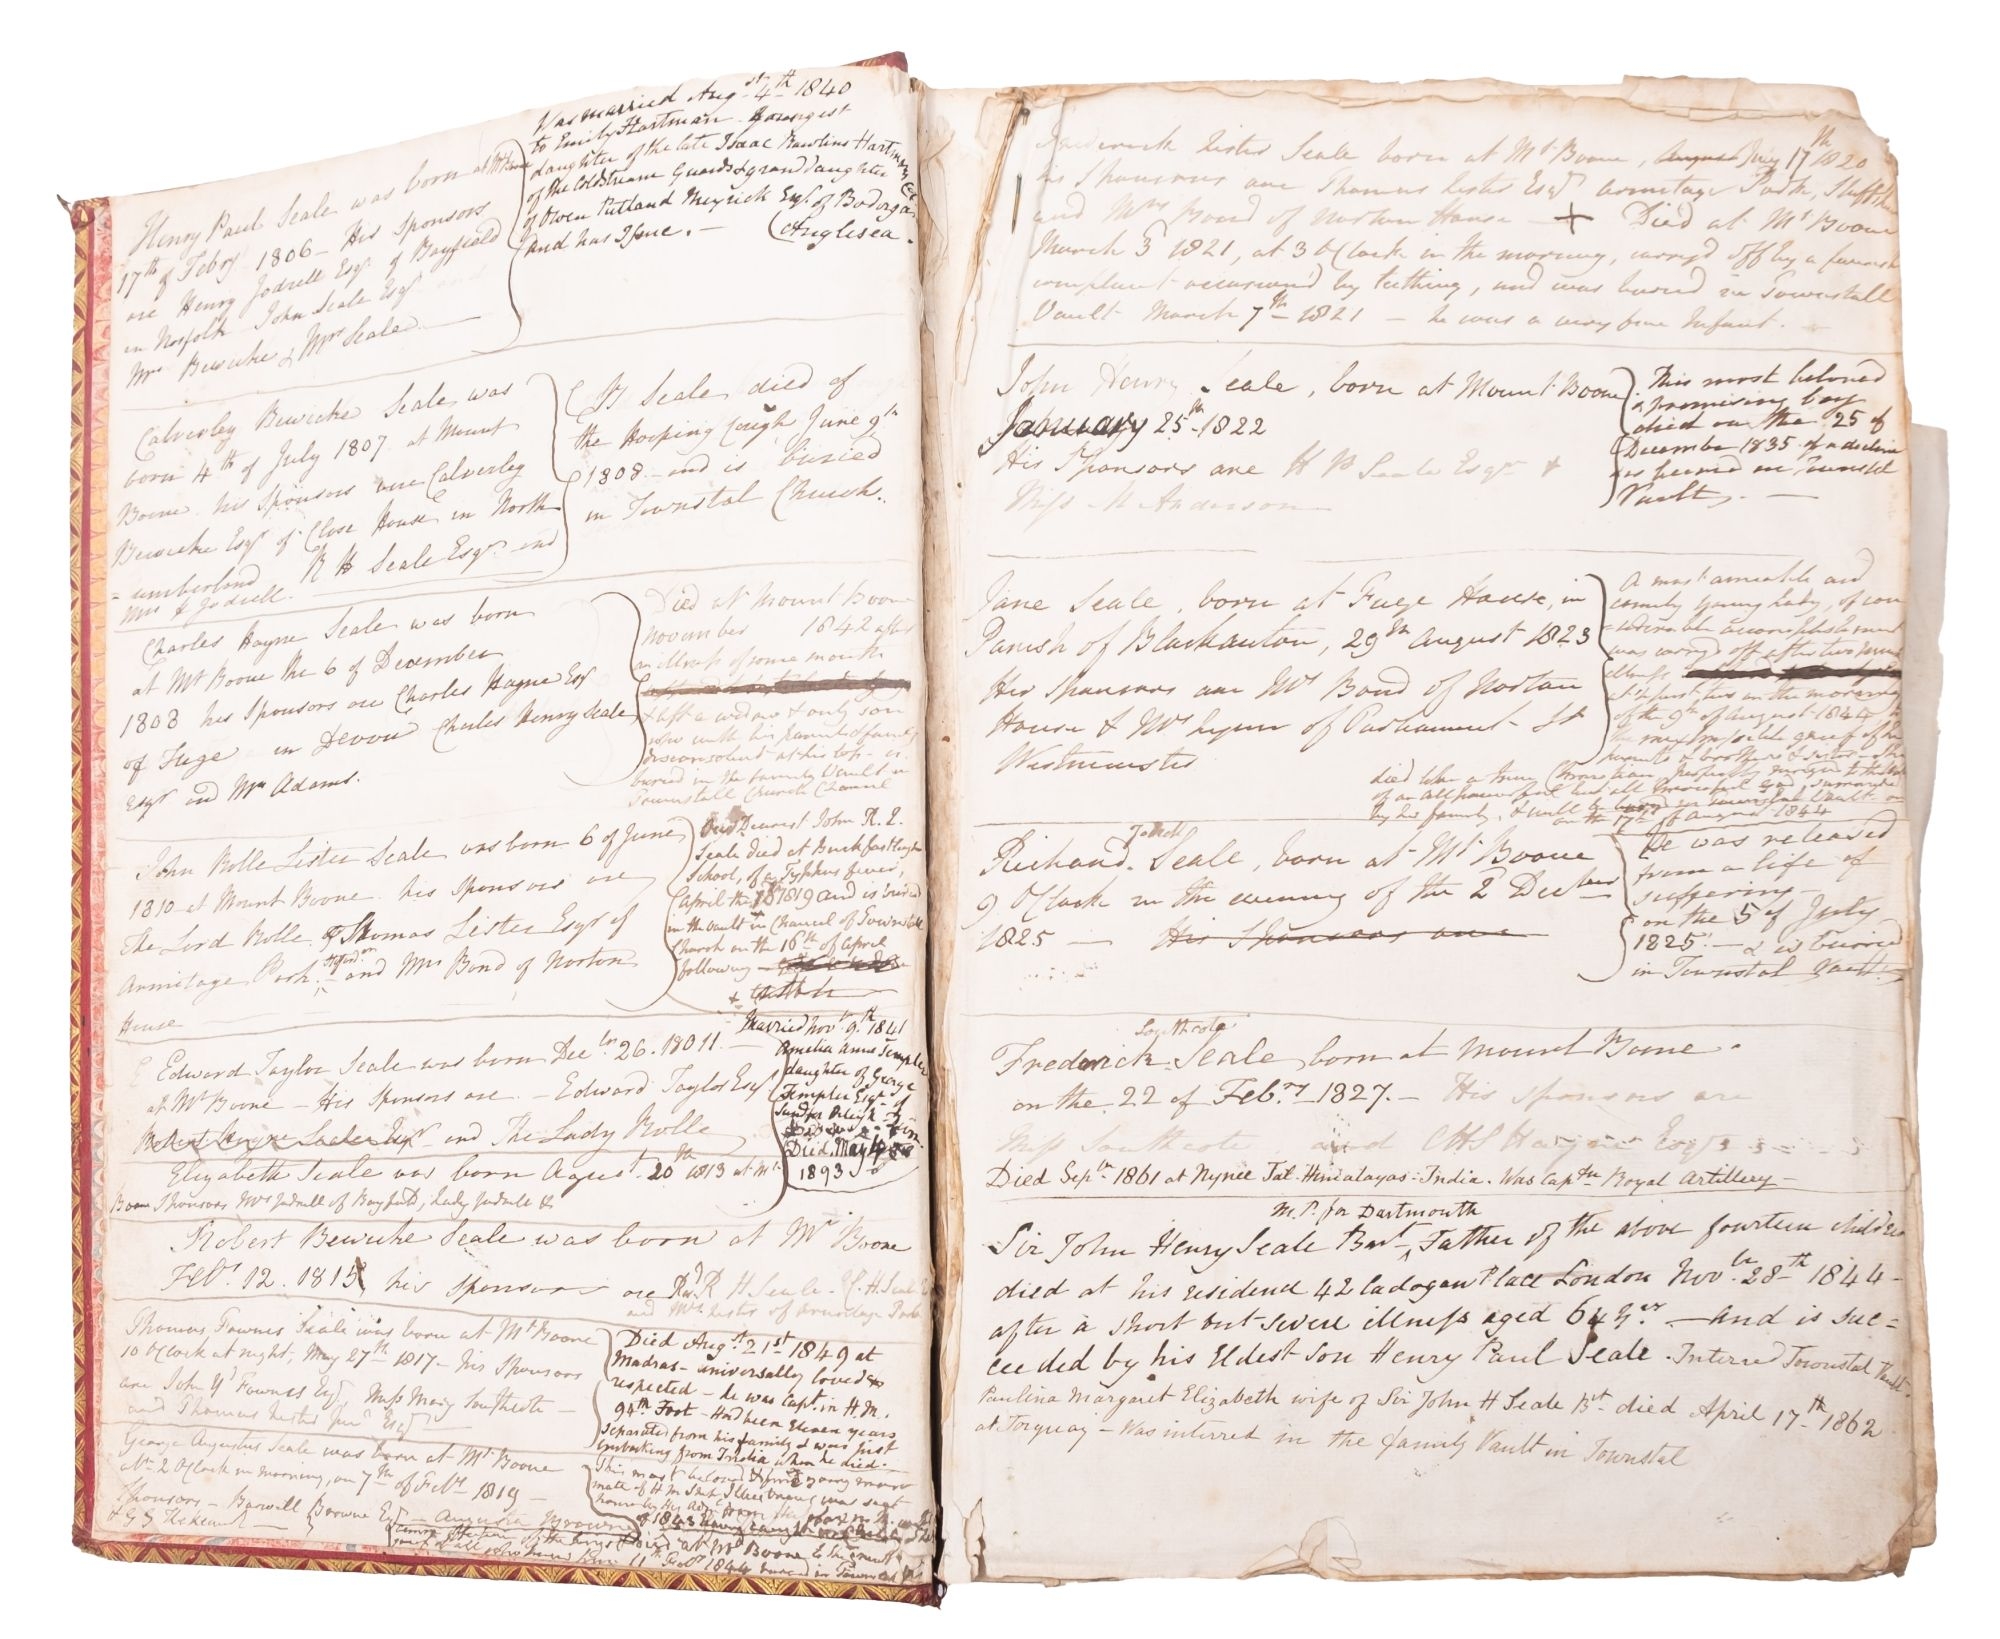 Henry Paul Seale was born at Mt Boone
17th of Febry 1806 - His Sponsors
are Henry Jodrell Esqr of Bayfield
in Norfolk John Seale Esqr and
Mrs Bewicke & Mrs Seale
Was married Augst 4th 1840
to Emily Hartman Youngest
daughter of the late Isaac Rawlins Hartman Esq
of the Coldstream Guards & granddaughter
of Owen Putland Meyrick Esqr of Bodorgan
and has Issue. - (Anglesea.
Calverley Bewicke Seale was
born 4th of July 1807 at Mount
Boone his Sponsors are Calverley
Bewicke Esqr of Close House in North
=umberland R H Seale Esqr and
Mrs H Jodrell.
Seale died of
the Hooping Cough June 9th
1808 - and is buried
in Townstal Church.
Charles Hayne Seale was born
at Mt Boone the 6 of December
1808 his Sponsors are Charles Hayne Esqr
of Fuge in Devon Charles Henry Seale
Esqr and Mrs Adams.
Died at Mount Boone
November 1842 after
illness of some months
& left a widow & only son
who with his parents & family
disconsolate at his loss is
buried in the family Vault in
Townstall Church Chancel
John Rolle Lister Seale was born 6 of June
1810 at Mount Boone his Sponsors are
The Lord Rolle & Thomas Lister Esqr of
Armitage Park and Mrs Bond of Norton
House
Our Dearest John R. L.
Seale died at Buckfastleigh
School, of a Typhus fever,
April the 1819 and is buried
in the vault in Chancel of Townstall
Church on the 16th of April
following
Edward Taylor Seale was born Decbr 26. 18011.
at Mt Boone - His Sponsors are - Edward Taylor Esqr
Esqr and The Lady Rolle
Married Novr 9th 1841
Amelia Anne Templer
daughter of George
Templer Esqr of
Died May
1893
Elizabeth Seale was born August 20th 1813 at Mt
Boone Sponsors Mrs Jodrell of Bayfield, Lady Jodrell &
Robert Bewicke Seale was born at Mt Boone
Feby 12. 1815 his sponsors are Revd R H Seale C. H. Seale
and Mrs Lister of Armitage Park
Thomas Fownes Seale was born at Mt Boone
10 OClock at night, May 27th 1817 - his Sponsors
are John Fownes Esqr Miss Mary Southcote -
and Thomas Lister Junr Esqr
Died Augst 21st 1849 at
Madras - universally loved &
respected - he was Capt. in H.M.
94th Foot - Had been Eleven years
Separated from his family & was just
Embarking from India when he died.
George Augustus Seale was born at Mt Boone
at 2 OClock in morning, on 7th of Feby 1819 -
Sponsors - Barwell Browne Esqr - Augusta Browne
This most beloved & fine young man
mate of H M Ship Illustrious was sent
of 1843
died at Mt Boone
11th Feby 1844 buried in Townstal
Frederick Lister Seale born at Mt Boone, July 17th 1820
his Sponsors are Thomas Lister Esqr Armitage Park, Staffshire
and Mrs Bond of Norton House - + Died at Mt Boone
March 3d 1821, at 3 OClock in the morning, carryd off by a feverish
complaint occasiond by teething, and was buried in Townstall
Vault March 7th 1821 - he was a very fine Infant.
John Henry Seale, born at Mount Boone
January 25th 1822
His Sponsors are H P Seale Esqr &
Miss M Anderson
This most beloved
& promising boy
died on the 25 of
December 1835 of a decline
is buried in Townstal
Vault. -
Jane Seale, born at Fuge House, in
Parish of Blackauton, 29th August 1823
Her Sponsors are Mrs Bond of Norton
House & Mrs Lynn of Parliament St
Westminster
A most amiable and
comely Young Lady, of con
=siderable accomplishment
was carry'd off after two years
illness
at past two in the morning
of the 9th of August 1844, to
the inexpressible grief of her
parents & brothers & sister - She
died like a true Christian, perfectly resigned to the will
of an all powerful but all merciful God surrounded
by her family, & will be buried in Townstal Vault
on the 17th of August 1844
Jodrell
Richard Seale, born at Mt Boone
9 OClock in the evening of the 2d Decber
1825 - His Sponsors are
He was released
from a life of
suffering -
on the 5 of July
1825. - & is buried
in Townstal Vault.
Southcote
Frederick Seale born at Mount Boone.
on the 22 of Febry 1827. - His sponsors are
Miss Southcote and CHS Hayne Esqr
Died Sepbr 1861 at Nynee Tal Himalayas - India. Was Captn Royal Artillery -
M.P. for Dartmouth
Sir John Henry Seale Bart Father of the above fourteen children
died at his residence 42 Cadogan Place London Novbr 28th 1844 -
after a short but severe illness aged 64 yrs - and is suc=
ceeded by his Eldest Son Henry Paul Seale. Interred Townstal Vault.
Paulina Margaret Elizabeth wife of Sir John H Seale Bt died April 17th 1862
at Torquay - Was interred in the family Vault in Townstal